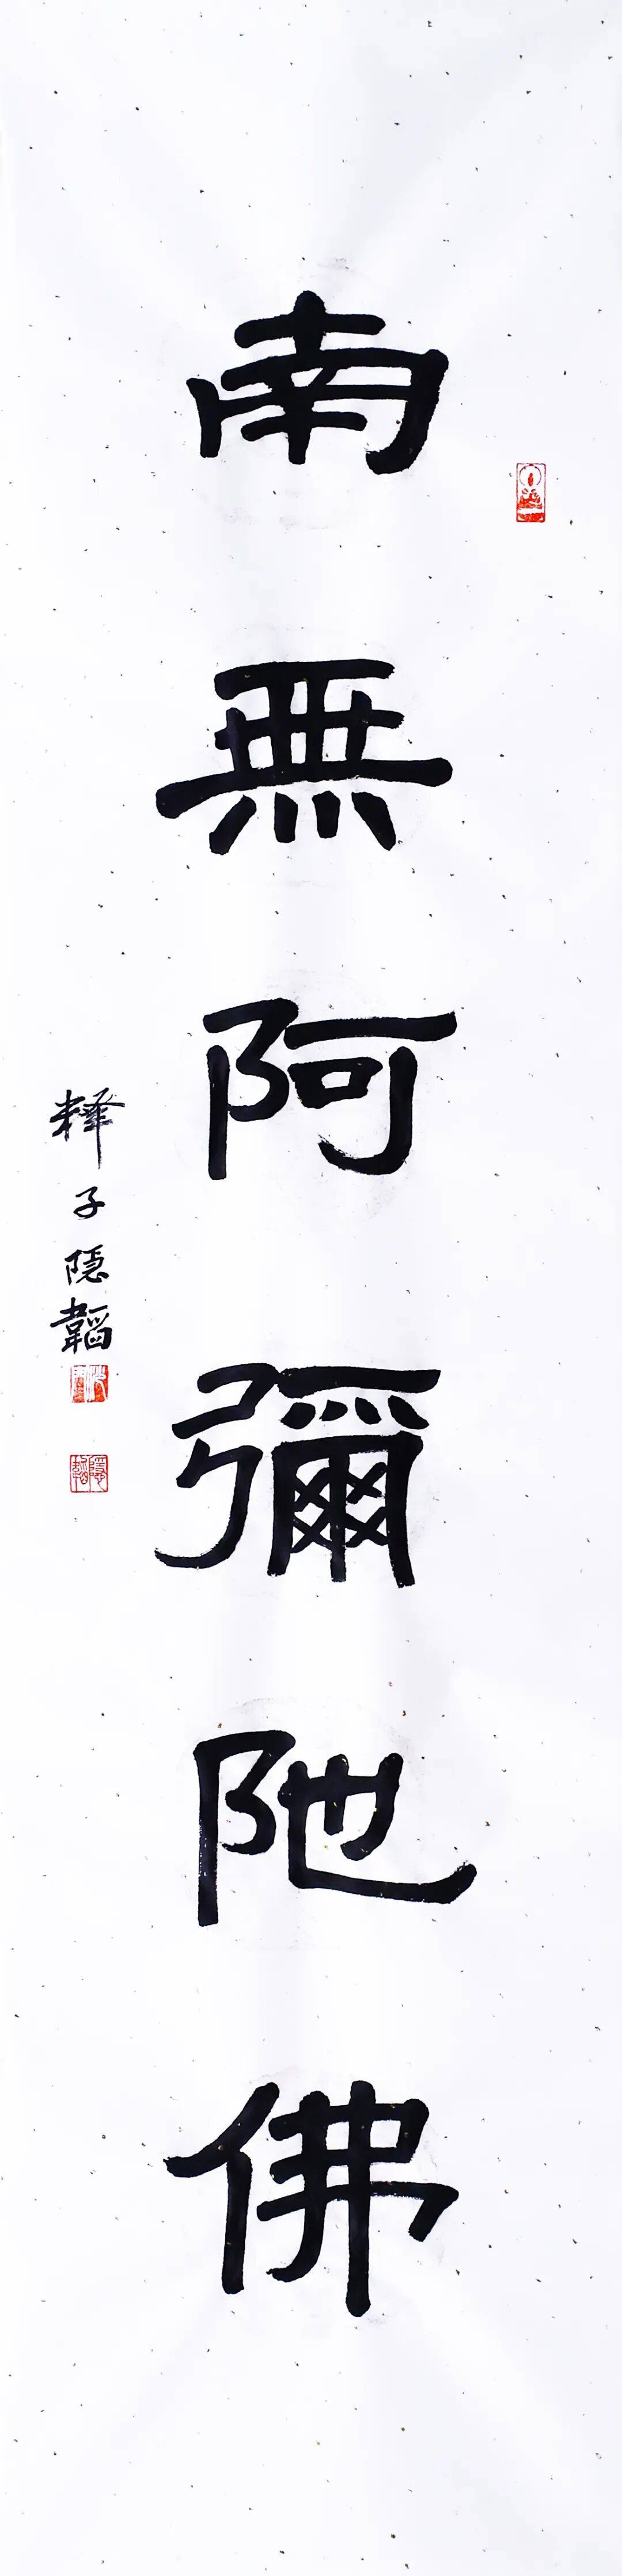 南無阿彌陀佛
釋子隱韜
隱韜